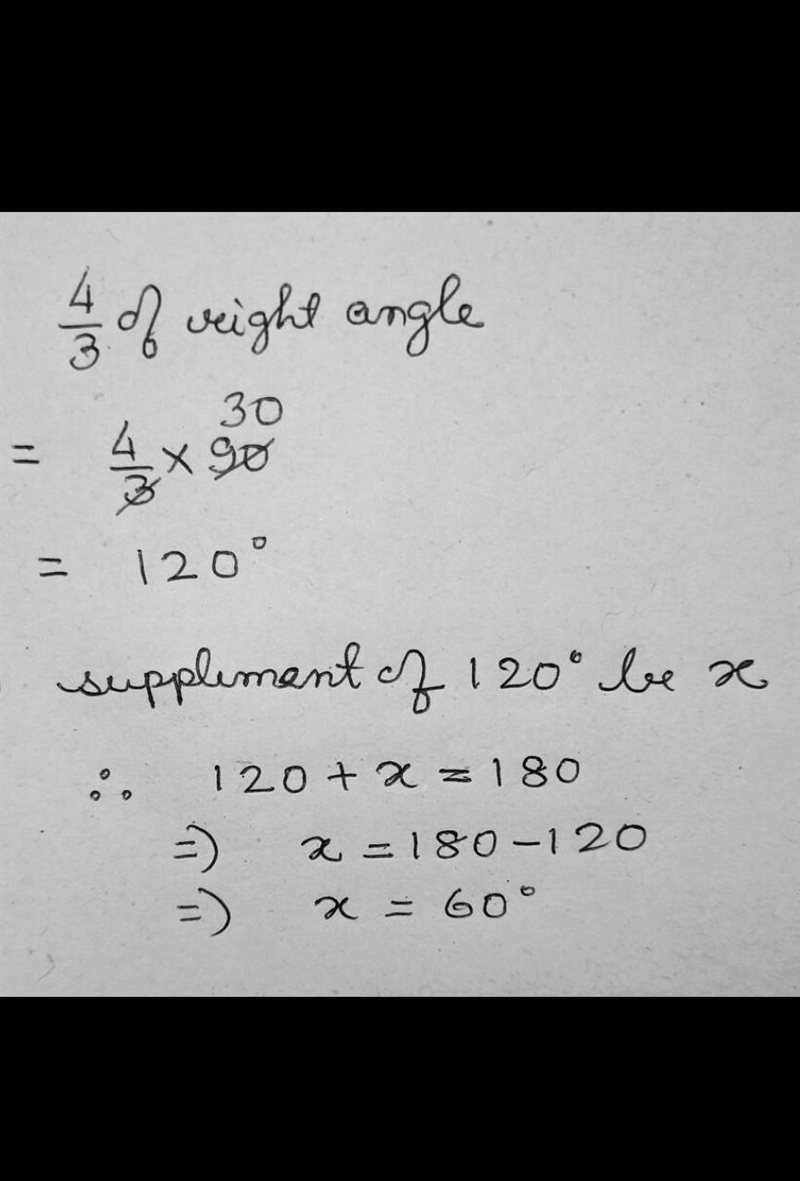 4/3 of right angle
= 4/3 × 90 30
= 120°
suppliment of 120° be x
∴ 120 + x = 180
=) x = 180 - 120
=) x = 60°